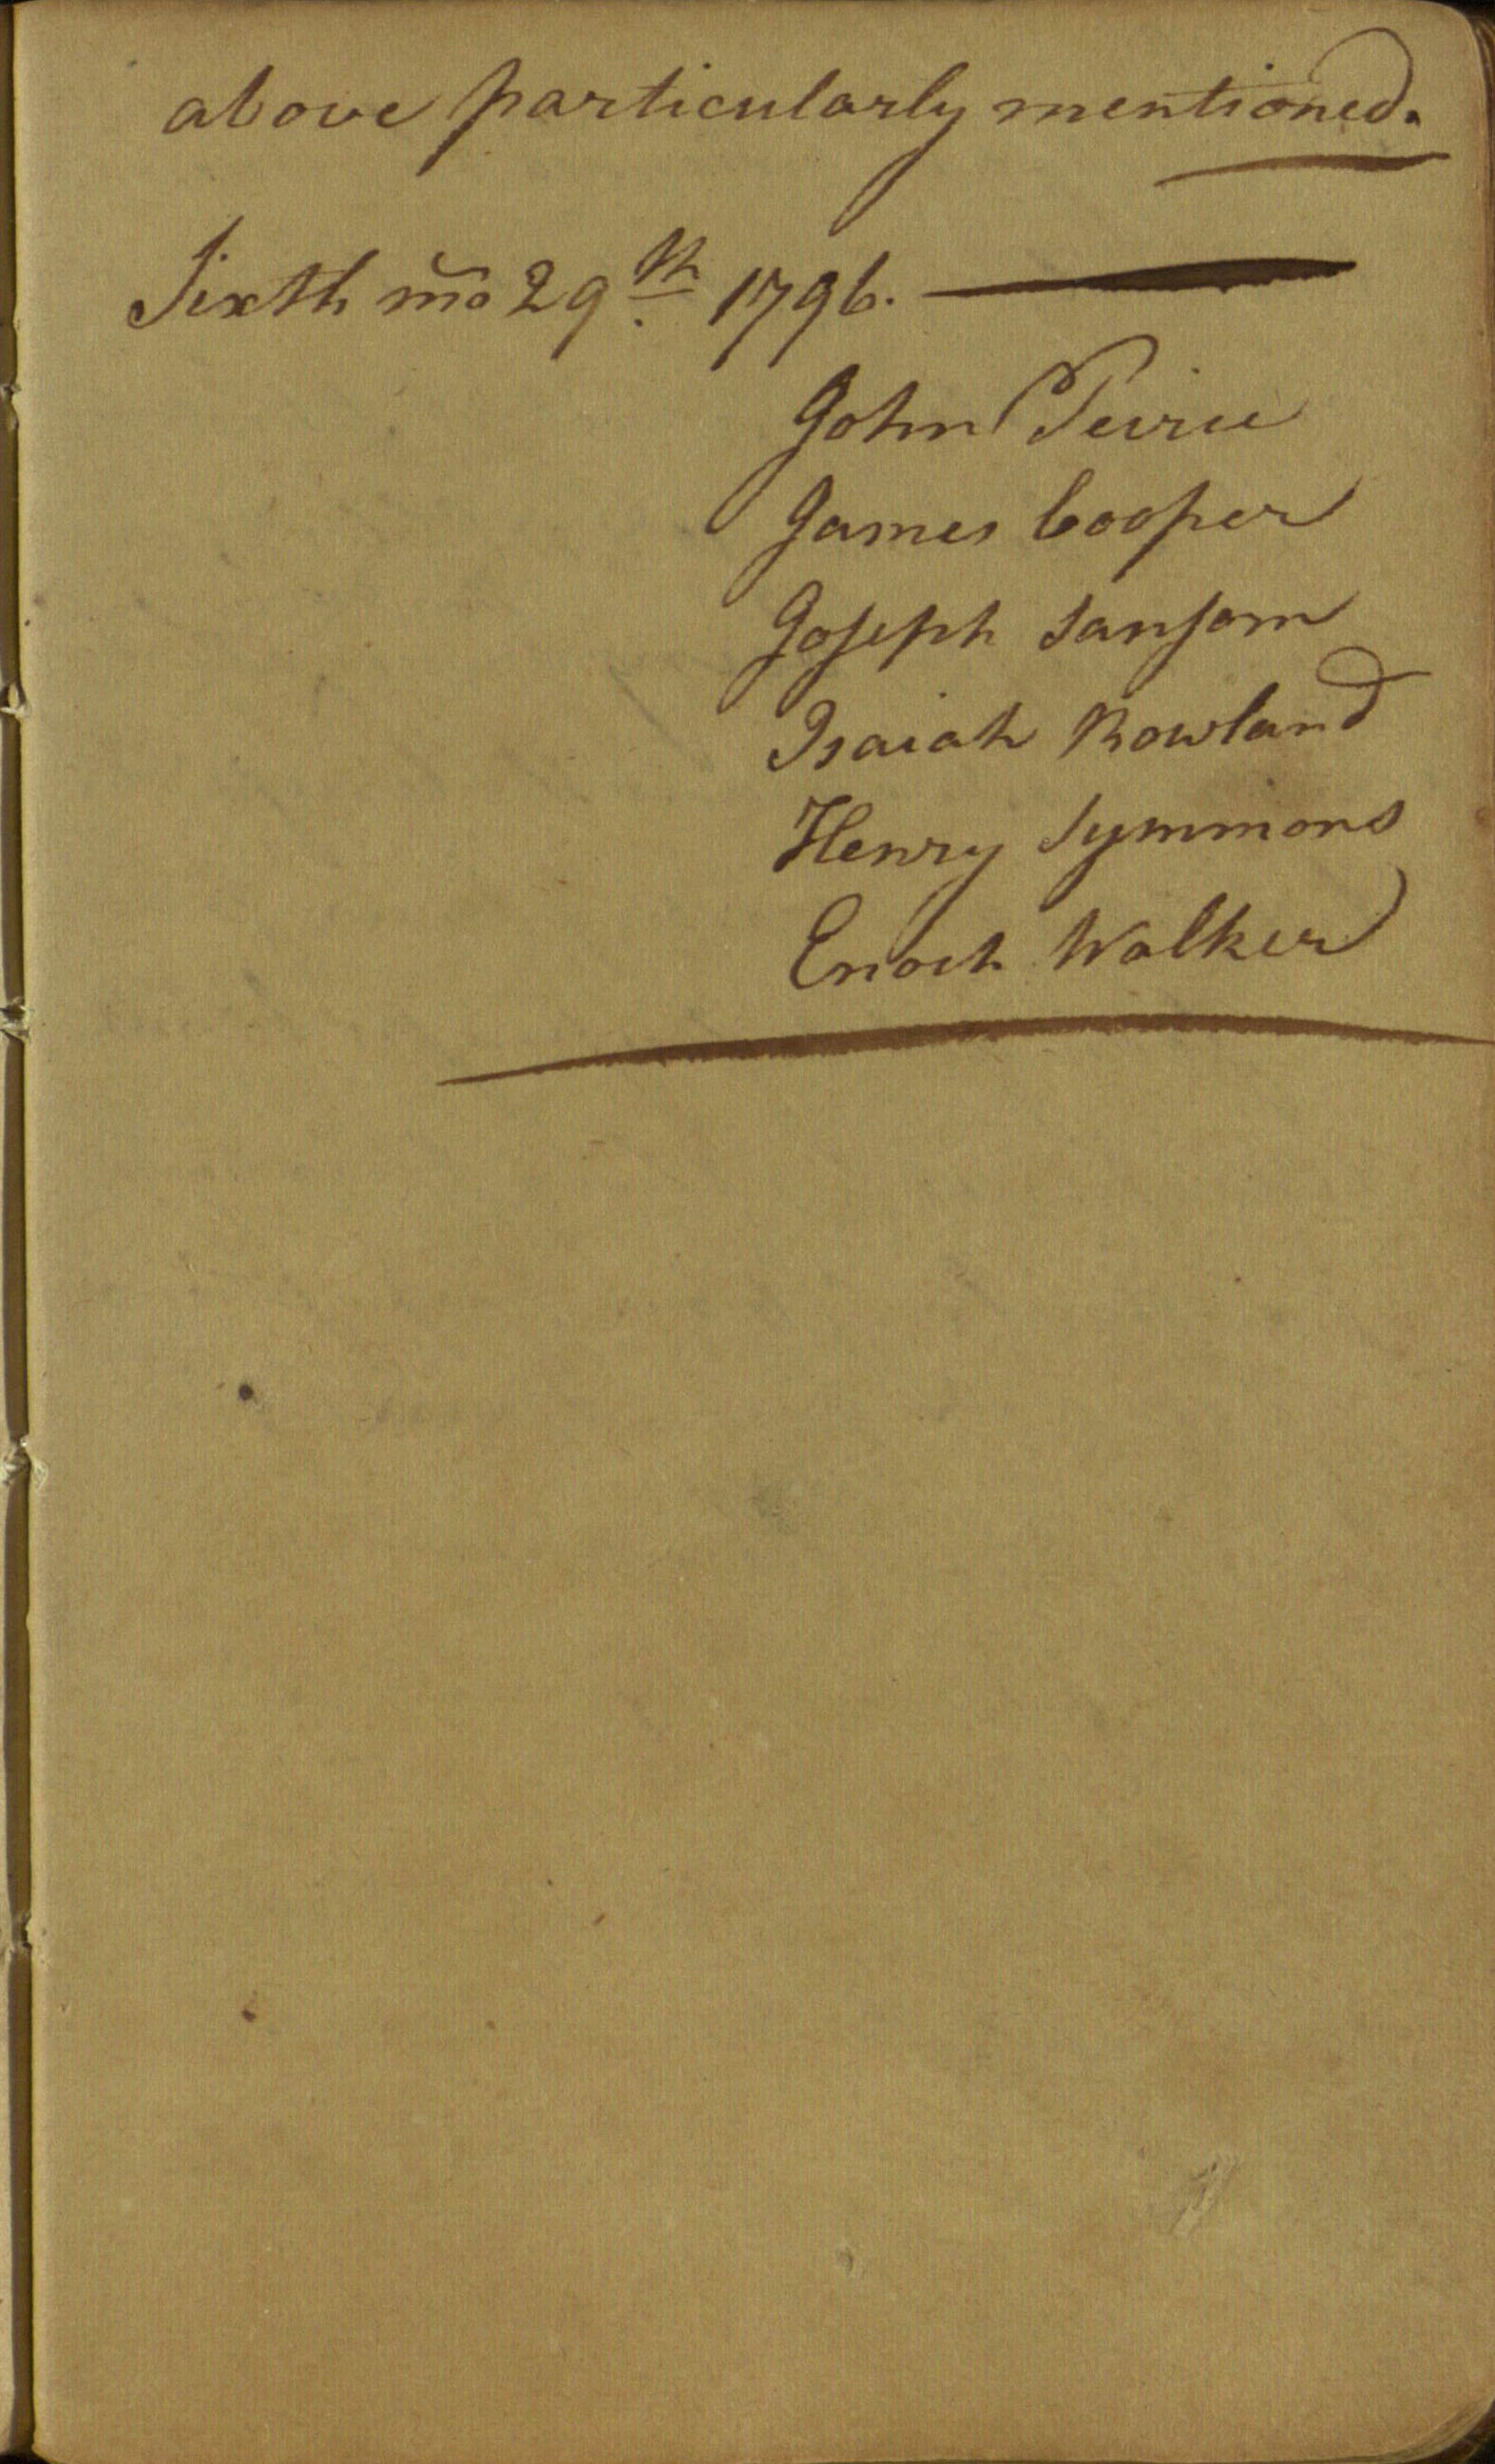 above particularly mentioned.
Sixth mo 29th 1796.
John Peirce
James Cooper
Joseph Sansom
Isaiah Rowland
Henry Symmons
Enoch Walker